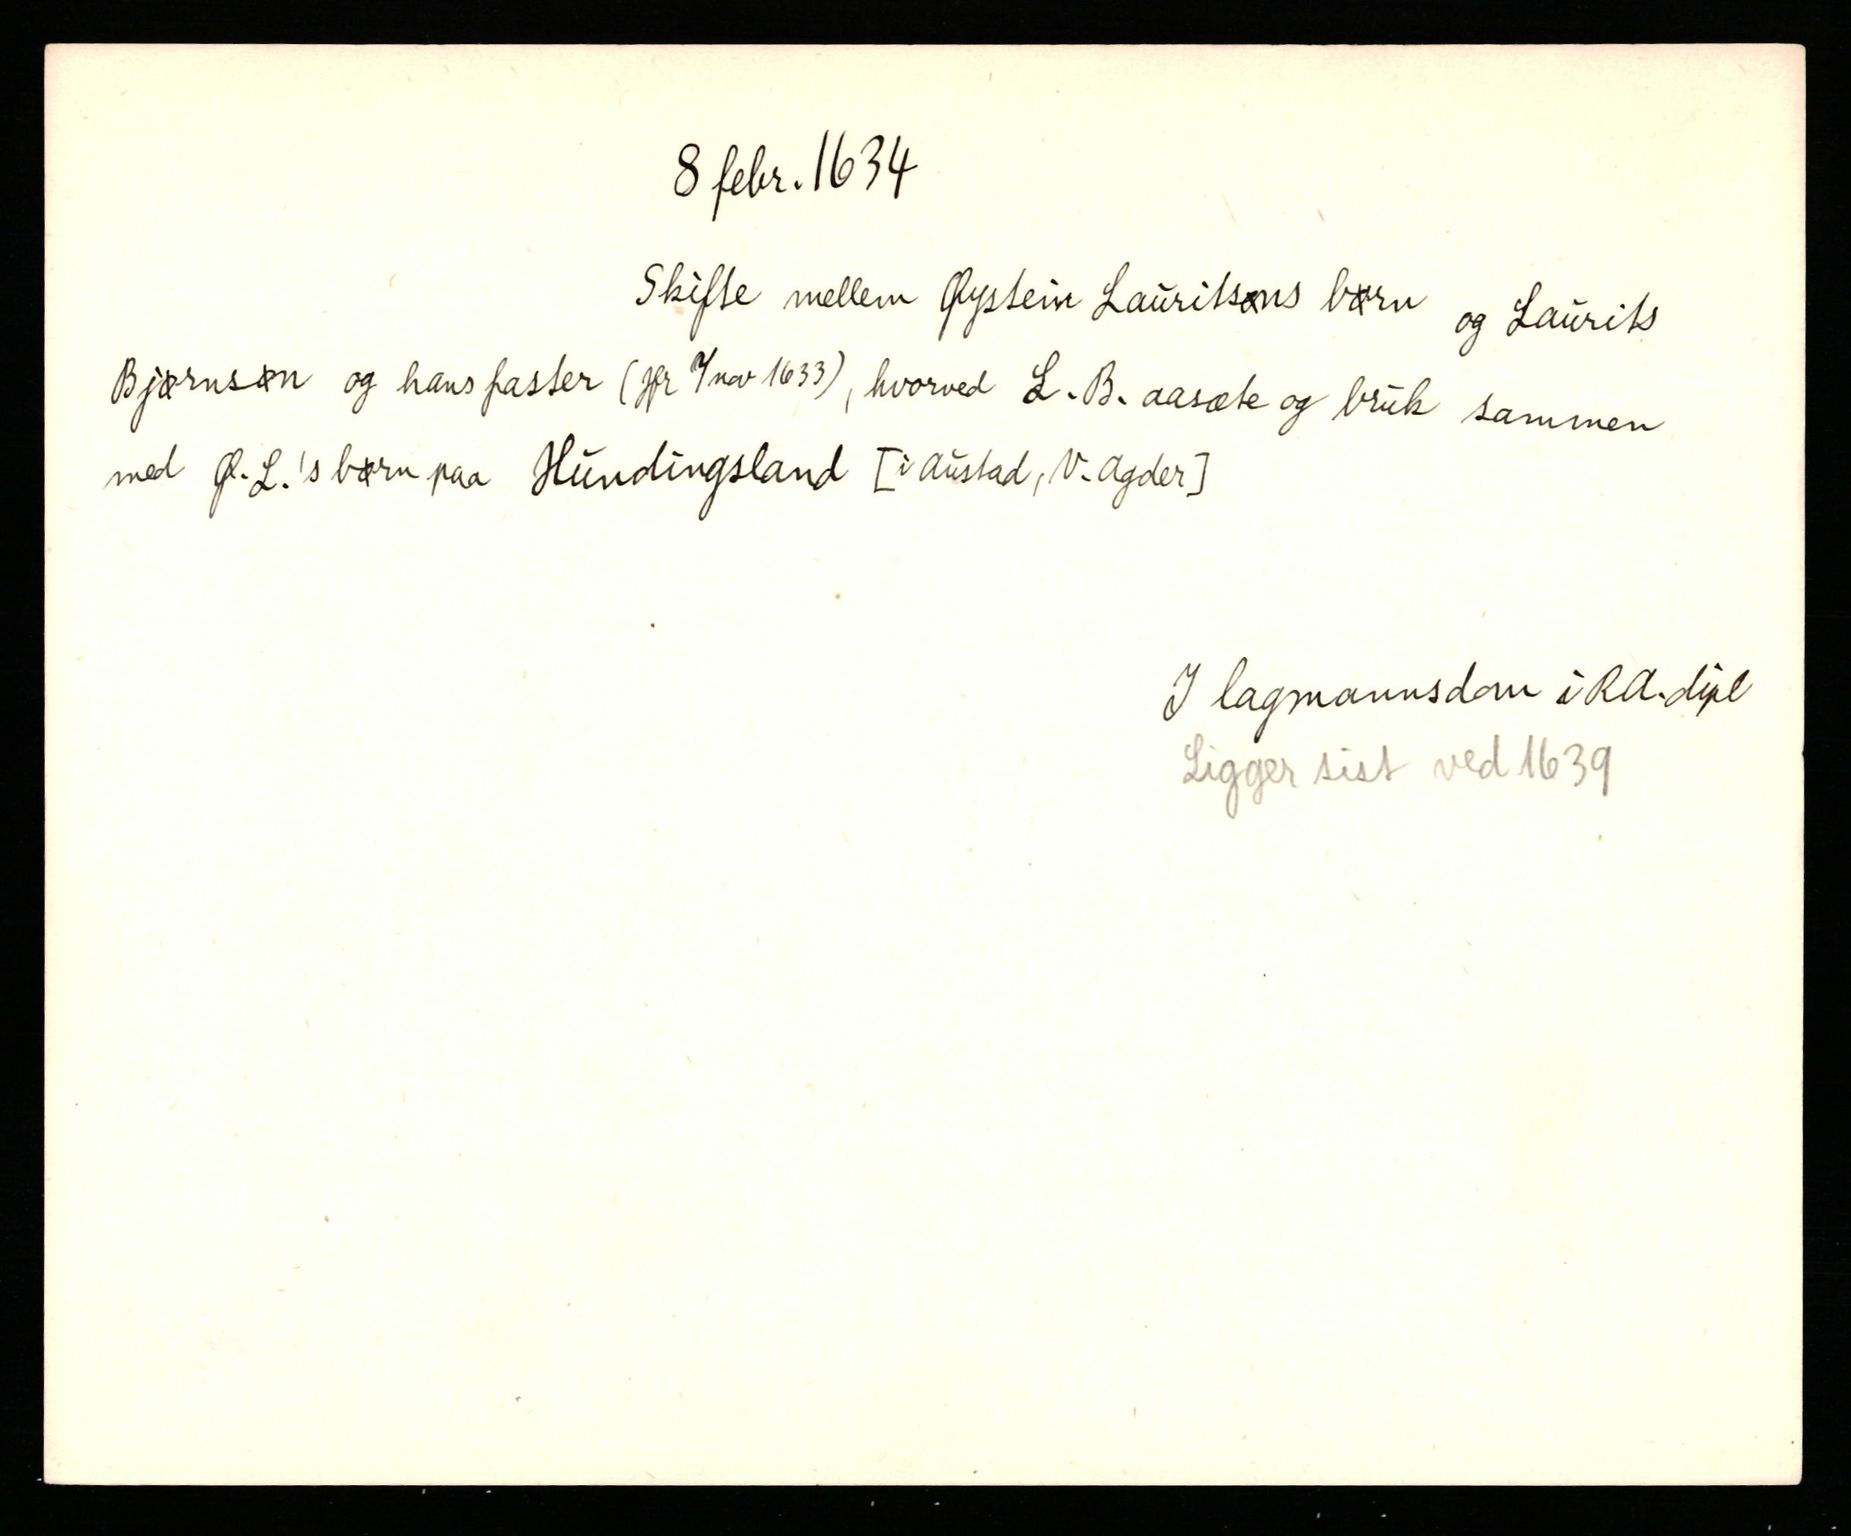 8 febr. 1634
Skifte mellem Øystein Lauritsøns børn og Laurits
Bjørnsøn og hans faster (jfr 7 nov 1633), hvorved L. B. aasæte og bruk sammen
med Ø. L.'s børn paa Hundingsland [i Austad, V. Agder]
I lagmannsdom i RA. dipl
Ligger sist ved 1639